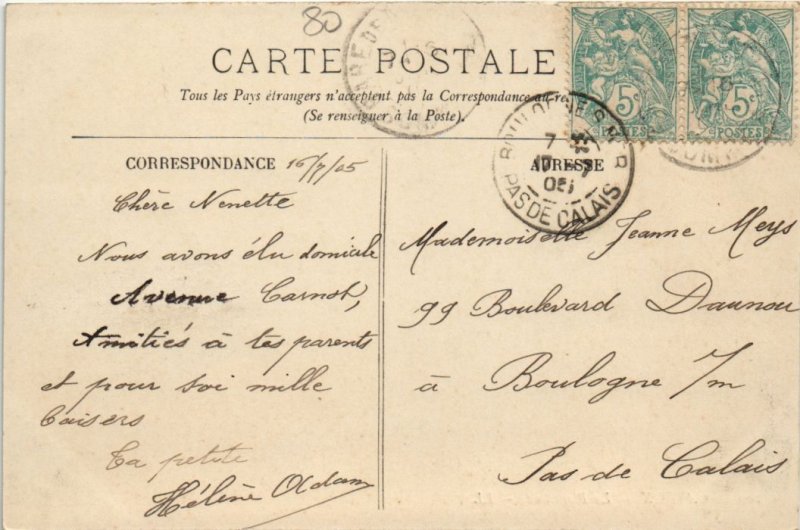 80
CARTE POSTALE
Tous les Pays étrangers n'acceptent pas la Correspondance au re
(Se renseigner à la Poste).
5c
POSTES
5c
POSTES
BOULOGNE S M R
7
17 7
05
PAS DE CALAIS
GARE DE
CORRESPONDANCE
16/7/05
Chère Nenette
Nous avons élu domicile
Avenue Carnot,
Amitiés à tes parents
et pour toi mille
baisers
Ta petite
Hélène Oldam
ADRESSE
Mademoiselle Jeanne Meys
99 Boulevard Daunou
à Boulogne s/m
Pas de Calais